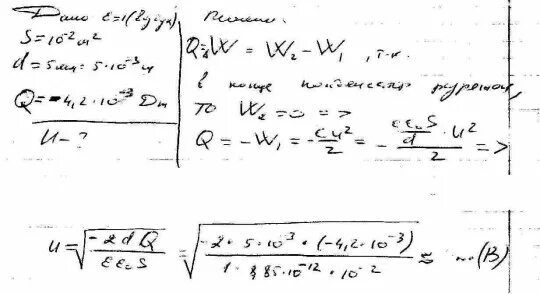 Дано ε=1(Воздух)
S=10⁻²м²
d=5мм=5·10⁻³м
Q=-4,2·10⁻³ Дж
U-?
Решение.
Q=W=W₂-W₁, т.к.
в конце конденсатор разряжен,
то W₂=0=>
Q=-W₁=-CU²/2=-(εε₀S/d·U²)/2=>
U=√(-2dQ/εε₀S)=√(-2·5·10⁻³·(-4,2·10⁻³)/1·8,85·10⁻¹²·10⁻²)≈ (В)